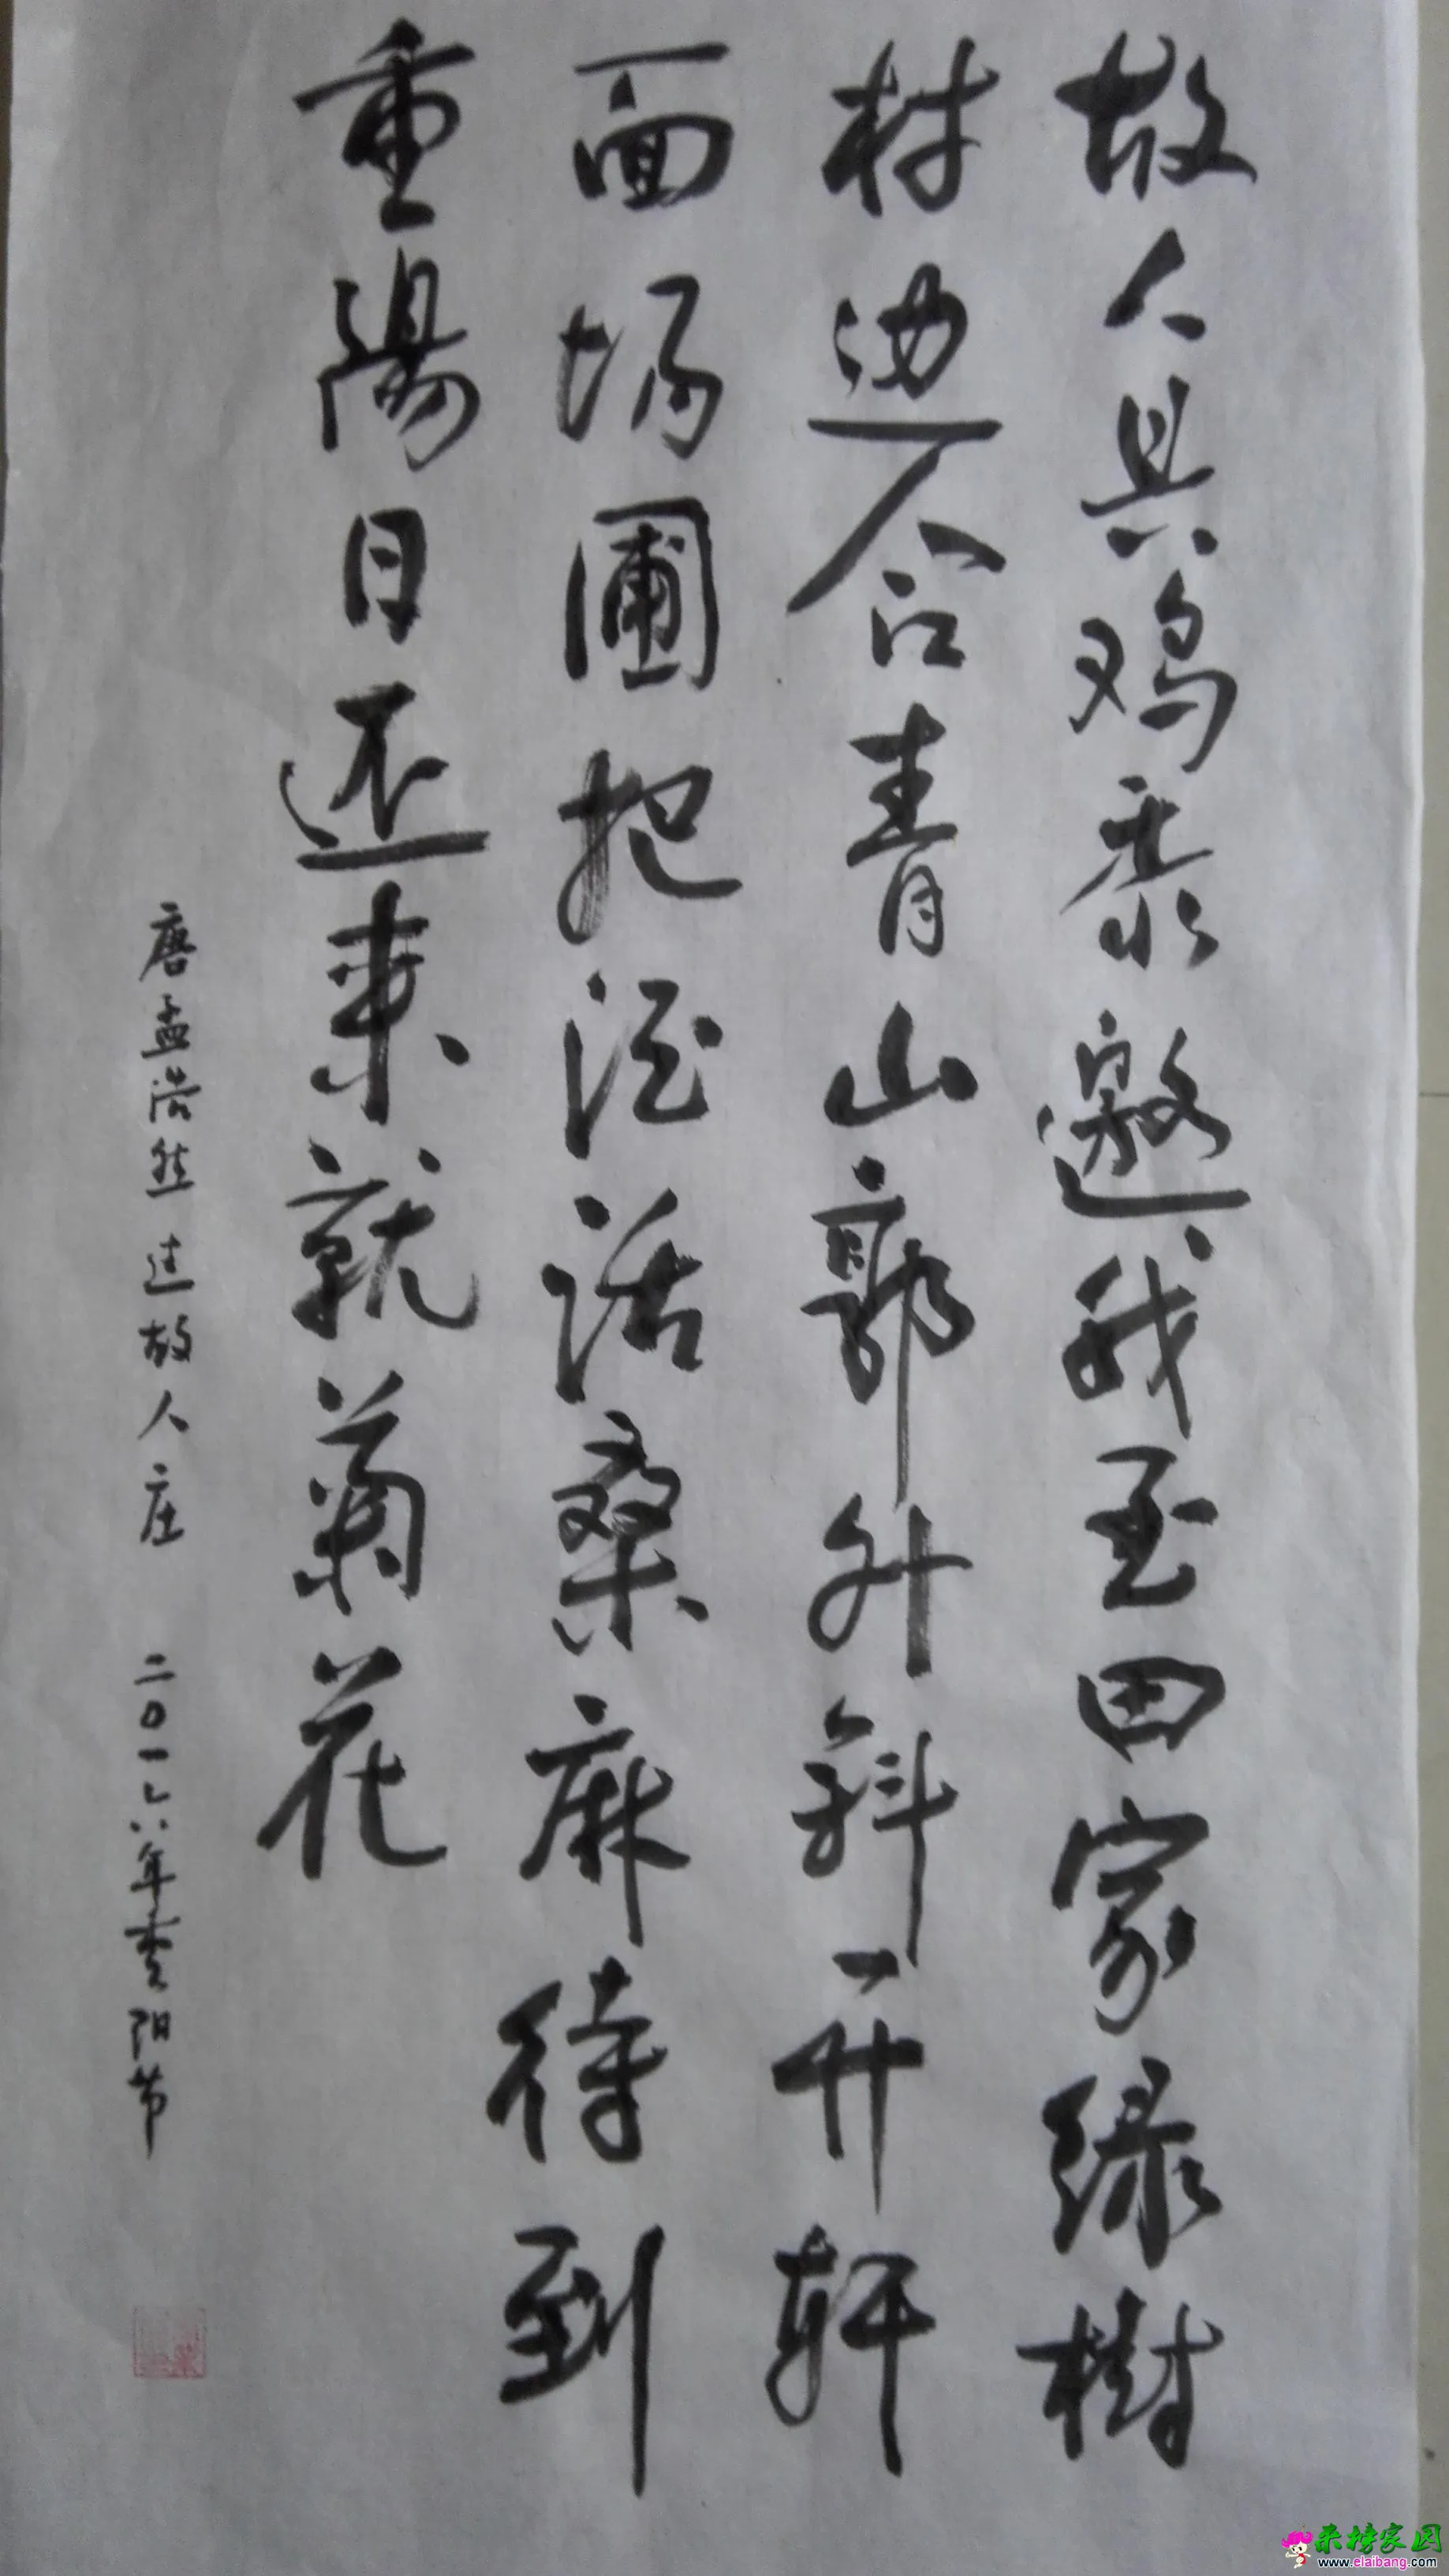 故人具鸡黍邀我至田家绿樹
村边合青山郭外斜开轩
面场圃把酒话桑麻待到
重陽日还来就菊花
唐孟浩然过故人庄 二0一六年重阳节
来榜家园
www.elaibang.com